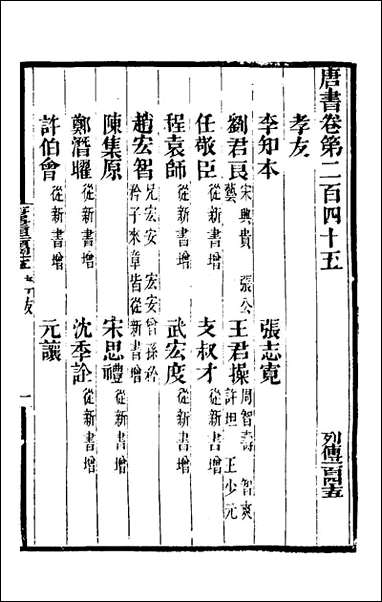 唐書卷第二百四十五 列傳一百四十五
孝友
李知本 張志寬
劉君良 宋興貴 張公藝 王君操 周智壽 智爽 許坦 王少元
任敬臣 從新書增 支叔才 從新書增
程袁師 從新書增 武宏度 從新書增
趙宏智 兄宏安 宏安曾孫矜 矜子來章皆從新書增
陳集原 宋思禮 從新書增
鄭潛曜 從新書增 沈季詮 從新書增
許伯會 從新書增 元讓
一